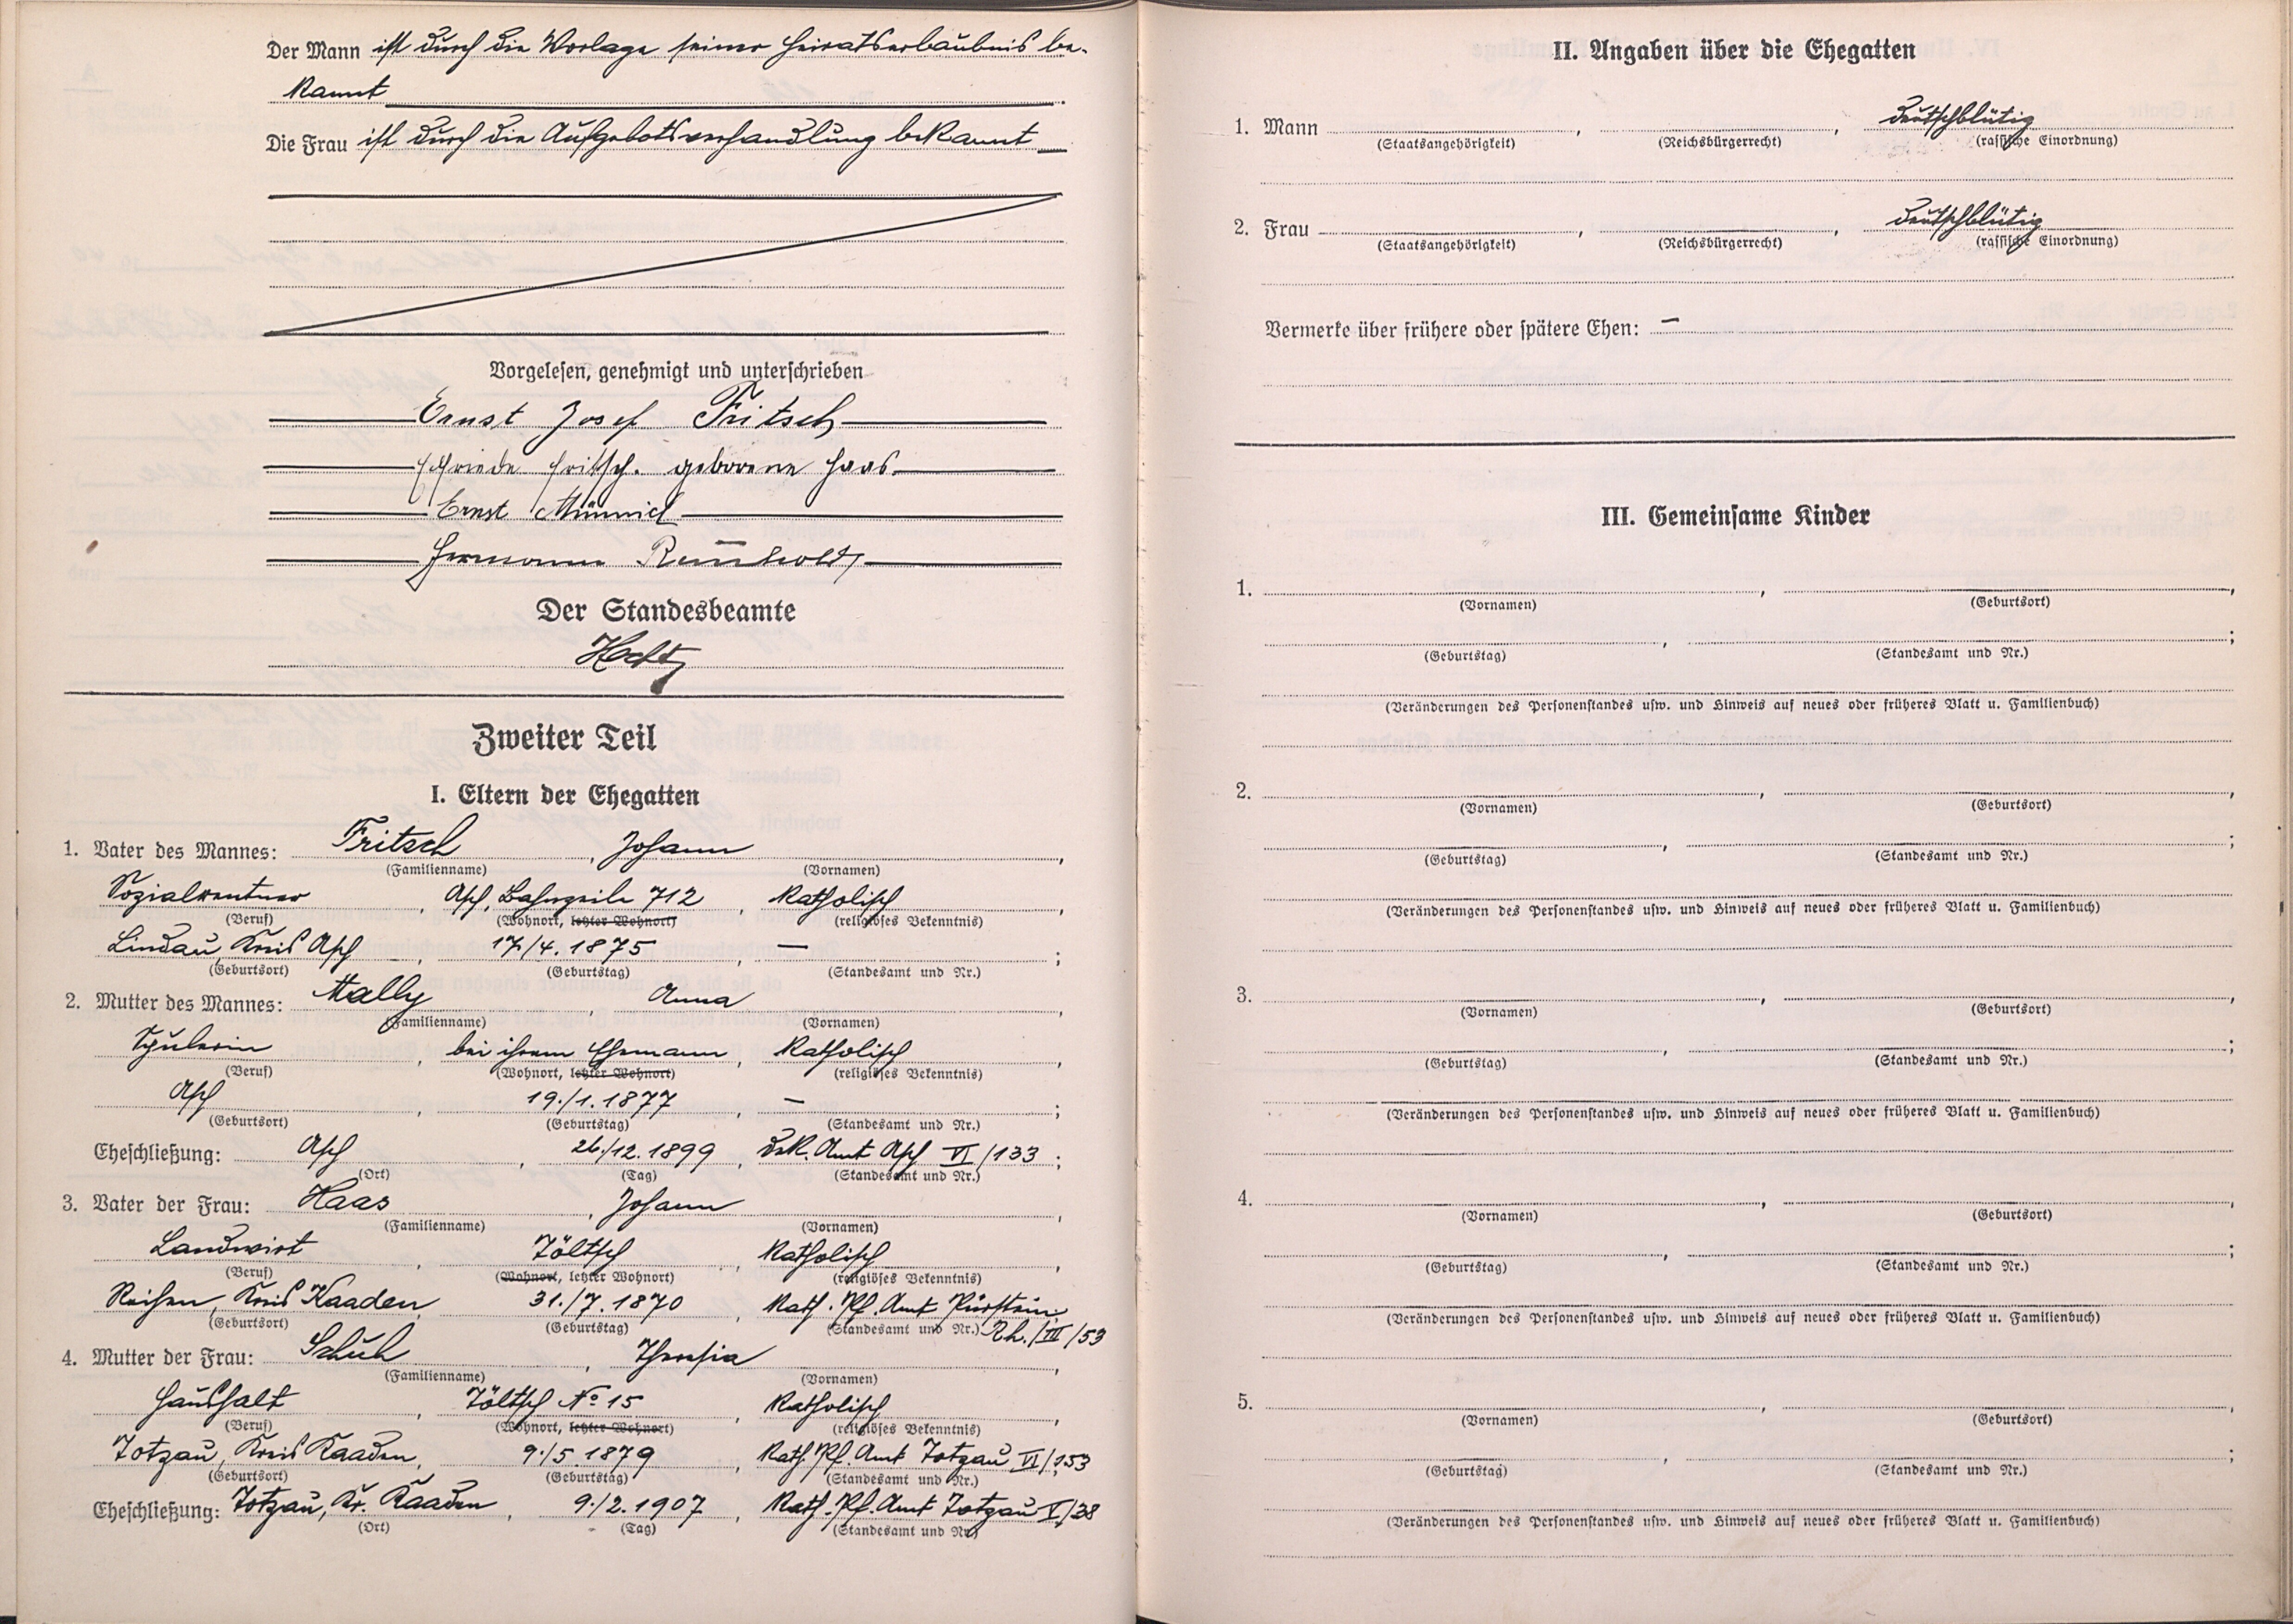 Der Mann ist durch die Vorlage seiner Heiratserlaubnis be-
kannt
Die Frau ist durch die Aufgebotsverhandlung bekannt
Vorgelesen, genehmigt und unterschrieben
Ernst Josef Fritsch
Elfriede Fritsch. geborene Haas
Ernst Münnich
Hermann
Der Standesbeamte
Zweiter Teil
I. Eltern der Ehegatten
1. Vater des Mannes: Fritsch, Johann,
(Familienname) (Vornamen)
Sozialrentner, Asch, Bahnzeile 712, Katholisch,
(Beruf) (Wohnort, letzter Wohnort) (religiöses Bekenntnis)
Lindau, Kreis Asch, 17/4. 1875, —;
(Geburtsort) (Geburtstag) (Standesamt und Nr.)
2. Mutter des Mannes: Mally, Anna,
(Familienname) (Vornamen)
Spulerin, bei ihrem Ehemann, Katholisch,
(Beruf) (Wohnort, letzter Wohnort) (religiöses Bekenntnis)
Asch, 19./1. 1877, —;
(Geburtsort) (Geburtstag) (Standesamt und Nr.)
Eheschließung: Asch, 26./12. 1899, Dek. Amt Asch VI/133;
(Ort) (Tag) (Standesamt und Nr.)
3. Vater der Frau: Haas, Johann,
(Familienname) (Vornamen)
Landwirt, Töltsch, Katholisch,
(Beruf) (Wohnort, letzter Wohnort) (religiöses Bekenntnis)
Reihen, Kreis Kaaden, 31./7. 1870, Kath. Pf. Amt Pürstein
(Geburtsort) (Geburtstag) (Standesamt und Nr.) Rh./III/53
4. Mutter der Frau: Schuh, Theresia,
(Familienname) (Vornamen)
Haushalt, Töltsch No 15, Katholisch,
(Beruf) (Wohnort, letzter Wohnort) (religiöses Bekenntnis)
Totzau, Kreis Kaaden, 9./5. 1879, Kath. Pf. Amt Totzau VI/153
(Geburtsort) (Geburtstag) (Standesamt und Nr.)
Eheschließung: Totzau, Kr. Kaaden, 9./2. 1907, Kath. Pf. Amt Totzau V/38
(Ort) (Tag) (Standesamt und Nr.)
II. Angaben über die Ehegatten
1. Mann , , deutschblütig
(Staatsangehörigkeit) (Reichsbürgerrecht) (rassische Einordnung)
2. Frau , , deutschblütig
(Staatsangehörigkeit) (Reichsbürgerrecht) (rassische Einordnung)
Vermerke über frühere oder spätere Ehen: —
III. Gemeinsame Kinder
1. , ,
(Vornamen) (Geburtsort)
, ;
(Geburtstag) (Standesamt und Nr.)
(Veränderungen des Personenstandes usw. und Hinweis auf neues oder früheres Blatt u. Familienbuch)
2. , ,
(Vornamen) (Geburtsort)
, ;
(Geburtstag) (Standesamt und Nr.)
(Veränderungen des Personenstandes usw. und Hinweis auf neues oder früheres Blatt u. Familienbuch)
3. , ,
(Vornamen) (Geburtsort)
, ;
(Geburtstag) (Standesamt und Nr.)
(Veränderungen des Personenstandes usw. und Hinweis auf neues oder früheres Blatt u. Familienbuch)
4. , ,
(Vornamen) (Geburtsort)
, ;
(Geburtstag) (Standesamt und Nr.)
(Veränderungen des Personenstandes usw. und Hinweis auf neues oder früheres Blatt u. Familienbuch)
5. , ,
(Vornamen) (Geburtsort)
, ;
(Geburtstag) (Standesamt und Nr.)
(Veränderungen des Personenstandes usw. und Hinweis auf neues oder früheres Blatt u. Familienbuch)